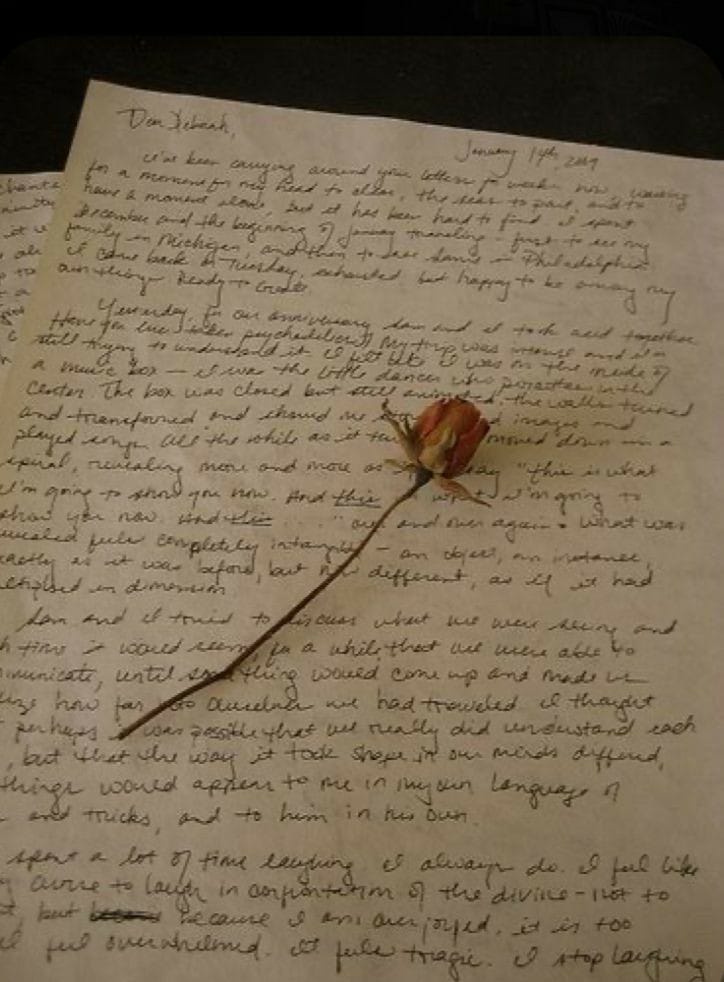 Dear Deborah,
January 14th, 2009
I've been carrying around your letters for weeks now, waiting
for a moment for my head to clear, the seas to part, and to
have a moment alone, but it has been hard to find. I spent
December and the beginning of January traveling - first to see my
family in Michigan, and then to see Sam in Philadelphia.
I came back on Tuesday, exhausted but happy to be among my
own things. Ready to create.
Yesterday, for our anniversary Sam and I took acid together.
Have you ever taken psychedelics? My trip was intense and I'm
still trying to understand it. I felt like I was on the inside of
a music box - I was the little dancer who pirouettes in the
center. The box was closed but still animated, the walls turned
and transformed and showed me images and
played songs. All the while as it moved down in a
spiral, revealing more and more as say "this is what
I'm going to show you now. And this is what I'm going to
show you now. And this ...." over and over again. What was
revealed feels completely intangible - an object, an instance,
exactly as it was before, but now different, as if it had
in dimension.
Sam and I tried to discuss what we were seeing and
time it would seem for a while that we were able to
communicate, until something would come up and made us
how far into ourselves we had traveled. I thought
perhaps it was possible that we really did understand each
, but that the way it took shape in our minds differed,
things would appear to me in my own language of
and tricks, and to him in his own.
spent a lot of time laughing. I always do. I feel like
to laugh in confrontation of the divine - not to
, but because I am overjoyed, it is too
I feel overwhelmed. It feels tragic. I stop laughing
chante